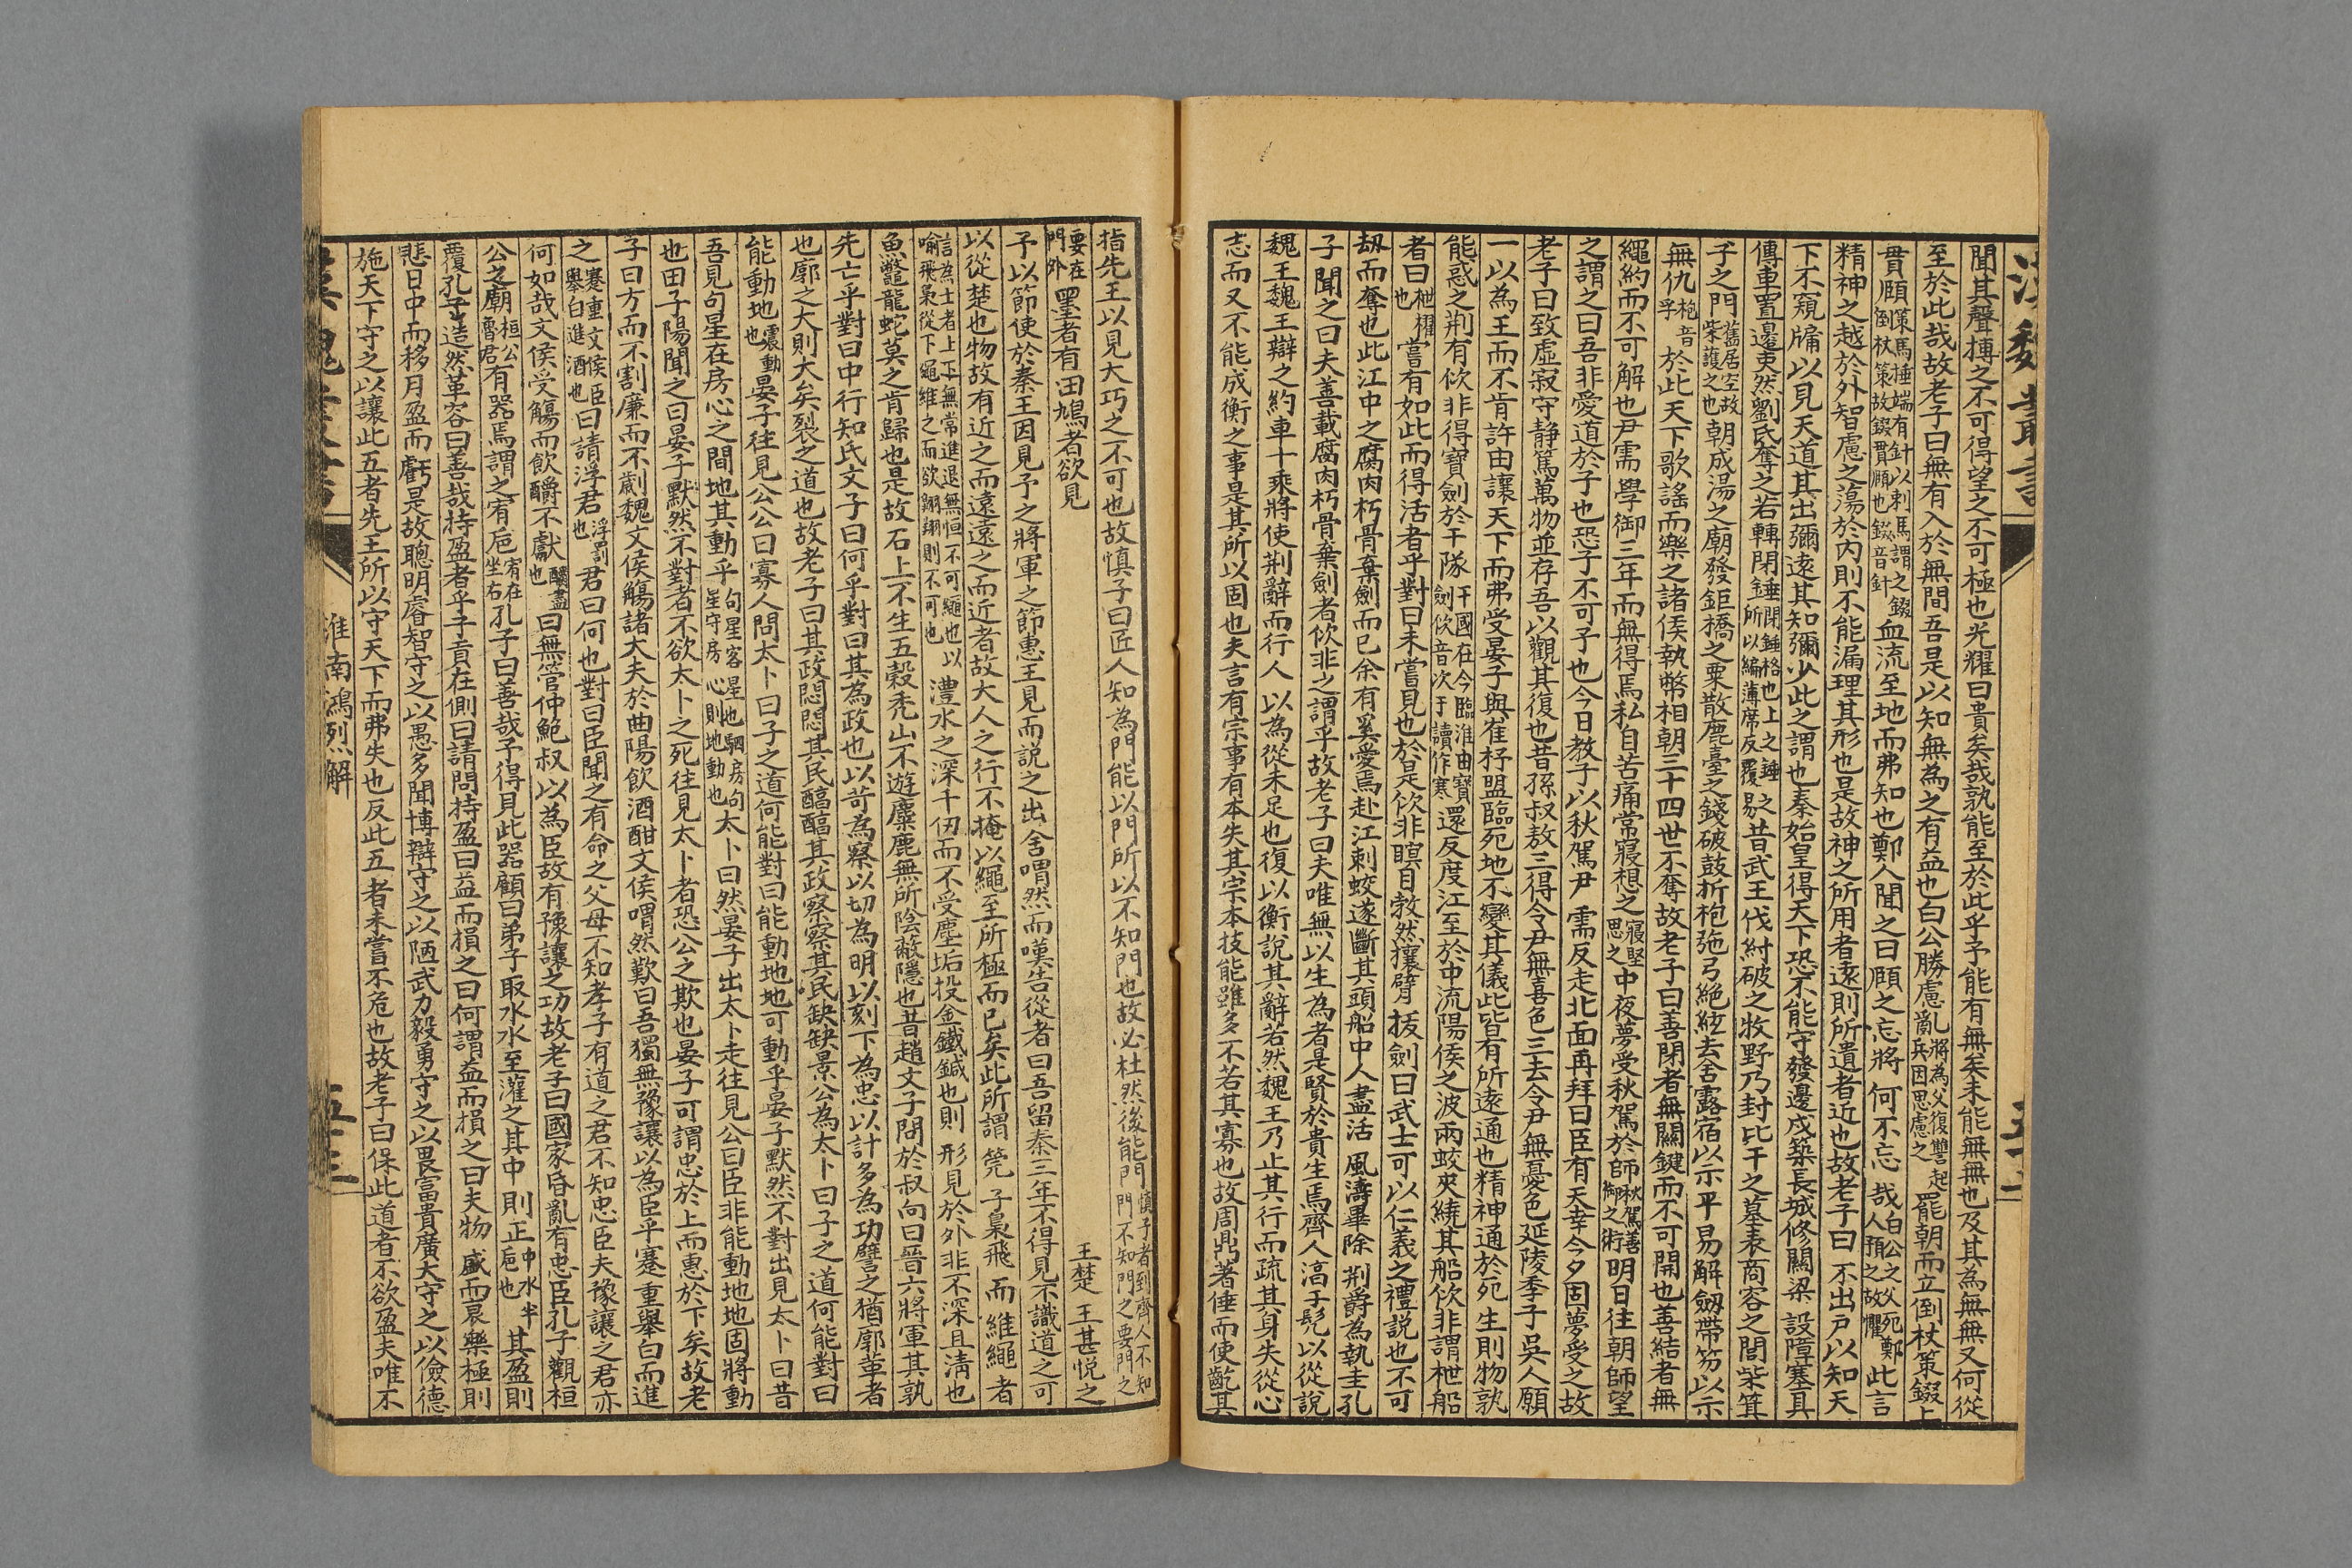 漢魏叢書
聞其聲搏之不可得望之不可極也光耀曰貴矣哉孰能至於此乎予能有無矣未能無無也及其為無無又何從
至於此哉故老子曰無有入於無間吾是以知無為之有益也白公勝慮亂將為父復讐起兵因思慮之罷朝而立倒杖策錣上
貫頤策馬捶端有針以刺馬謂之錣倒杖策故錣貫頤也錣音針血流至地而弗知也鄭人聞之曰頤之忘將何不忘哉白公之父死鄭人預之故懼此言
精神之越於外智慮之蕩於內則不能漏理其形也是故神之所用者遠則所遺者近也故老子曰不出戶以知天
下不窺牖以見天道其出彌遠其知彌少此之謂也秦始皇得天下恐不能守發邊戍築長城修關梁設障塞具
傳車置邊吏然劉氏奪之若轉閉錘閉錘格也上之錘所以編薄席反覆易之昔武王伐紂破之牧野乃封比干之墓表商容之閭柴箕
子之門舊居空故柴護之也朝成湯之廟發鉅橋之粟散鹿臺之錢破鼓折枹弛弓絕絃去舍露宿以示平易解劔帶笏以示
無仇枹音孚於此天下歌謠而樂之諸侯執幣相朝三十四世不奪故老子曰善閉者無關鍵而不可開也善結者無
繩約而不可解也尹需學御三年而無得焉私自苦痛常寢想之寢堅思之中夜夢受秋駕於師秋駕善御之術明日往朝師望
之謂之曰吾非愛道於子也恐子不可予也今日教子以秋駕尹需反走北面再拜曰臣有天幸今夕固夢受之故
老子曰致虛寂守靜篤萬物並存吾以觀其復也昔孫叔敖三得令尹無喜色三去令尹無憂色延陵季子吳人願
一以為王而不肯許由讓天下而弗受晏子與崔杼盟臨死地不變其儀此皆有所遠通也精神通於死生則物孰
能惑之荆有佽非得寶劍於干隊干國在今臨淮由寶劍佽音次于讀作寒還反度江至於中流陽侯之波兩蛟夾繞其船佽非謂枻船
者曰枻櫂也嘗有如此而得活者乎對曰未嘗見也於是佽非瞑目敦然攘臂拔劍曰武士可以仁義之禮說也不可
劫而奪也此江中之腐肉朽骨棄劍而已余有奚愛焉赴江刺蛟遂斷其頭船中人盡活風濤畢除荆爵為執圭孔
子聞之曰夫善載腐肉朽骨棄劍者佽非之謂乎故老子曰夫唯無以生為者是賢於貴生焉齊人淳于髡以從說
魏王魏王辯之約車十乘將使荆辭而行人以為從未足也復以衡說其辭若然魏王乃止其行而疏其身失從心
志而又不能成衡之事是其所以固也夫言有宗事有本失其宗本技能雖多不若其寡也故周鼎著倕而使齕其
指先王以見大巧之不可也故慎子曰匠人知為門能以門所以不知門也故必杜然後能門慎子者到齊人不知門不知門之要門之
要在門外墨者有田鳩者欲見王楚王甚悅之
予以節使於秦王因見予之將軍之節惠王見而說之出舍喟然而嘆告從者曰吾留秦三年不得見不識道之可
以從楚也物故有近之而遠遠之而近者故大人之行不掩以繩至所極而已矣此所謂筦子梟飛而維繩者
言為士者上下無常進退無恒不可繩也以喻飛梟從下繩維之而欲翺翔則不可也灃水之深千仞而不受塵垢投金鐵鍼也則形見於外非不深且清也
魚鼈龍蛇莫之肯歸也是故石上不生五穀禿山不遊麋鹿無所陰蔽隱也昔趙文子問於叔向曰晉六將軍其孰
先亡乎對曰中行知氏文子曰何乎對曰其為政也以苛為察以切為明以刻下為忠以計多為功譬之猶廓革者
也廓之大則大矣裂之道也故老子曰其政悶悶其民醕醕其政察察其民缺缺景公為太卜曰子之道何能對曰
能動地震動也晏子往見公公曰寡人問太卜曰子之道何能對曰能動地地可動乎晏子默然不對出見太卜曰昔
吾見句星在房心之間地其動乎句星客星也駟房句星守房心則地動也太卜曰然晏子出太卜走往見公曰臣非能動地地固將動
也田子陽聞之曰晏子默然不對者不欲太卜之死往見太卜者恐公之欺也晏子可謂忠於上而惠於下矣故老
子曰方而不割廉而不劌魏文侯觴諸大夫於曲陽飲酒酣文侯喟然歎曰吾獨無豫讓以為臣乎蹇重舉白而進
之蹇重文侯臣舉白進酒也曰請浮君浮罰也君曰何也對曰臣聞之有命之父母不知孝子有道之君不知忠臣夫豫讓之君亦
何如哉文侯受觴而飲釂不獻釂盡也曰無管仲鮑叔以為臣故有豫讓之功故老子曰國家昏亂有忠臣孔子觀桓
公之廟桓公魯君有器焉謂之宥巵宥在坐右孔子曰善哉予得見此器顧曰弟子取水水至灌之其中則正中水半巵也其盈則
覆孔子造然革容曰善哉持盈者乎子貢在側曰請問持盈曰益而損之曰何謂益而損之曰夫物盛而衰樂極則
悲日中而移月盈而虧是故聰明睿智守之以愚多聞博辯守之以陋武力毅勇守之以畏富貴廣大守之以儉德
施天下守之以讓此五者先王所以守天下而弗失也反此五者未嘗不危也故老子曰保此道者不欲盈夫唯不
漢魏叢書 淮南鴻烈解 五十三